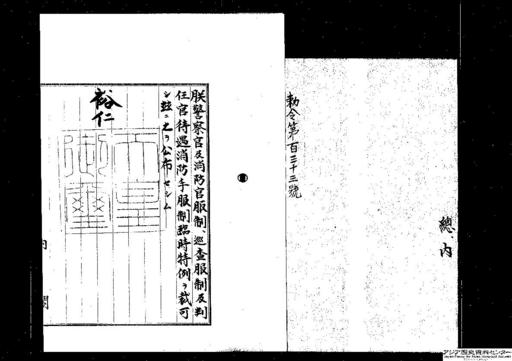 勅令第百三十三號
總、內
朕警察官及消防官服制、巡查服制及判
任官待遇消防手服制臨時特例ヲ裁可
シ玆ニ之ヲ公布セシム
裕仁
天皇
御璽
內
閣
アジア歴史資料センター